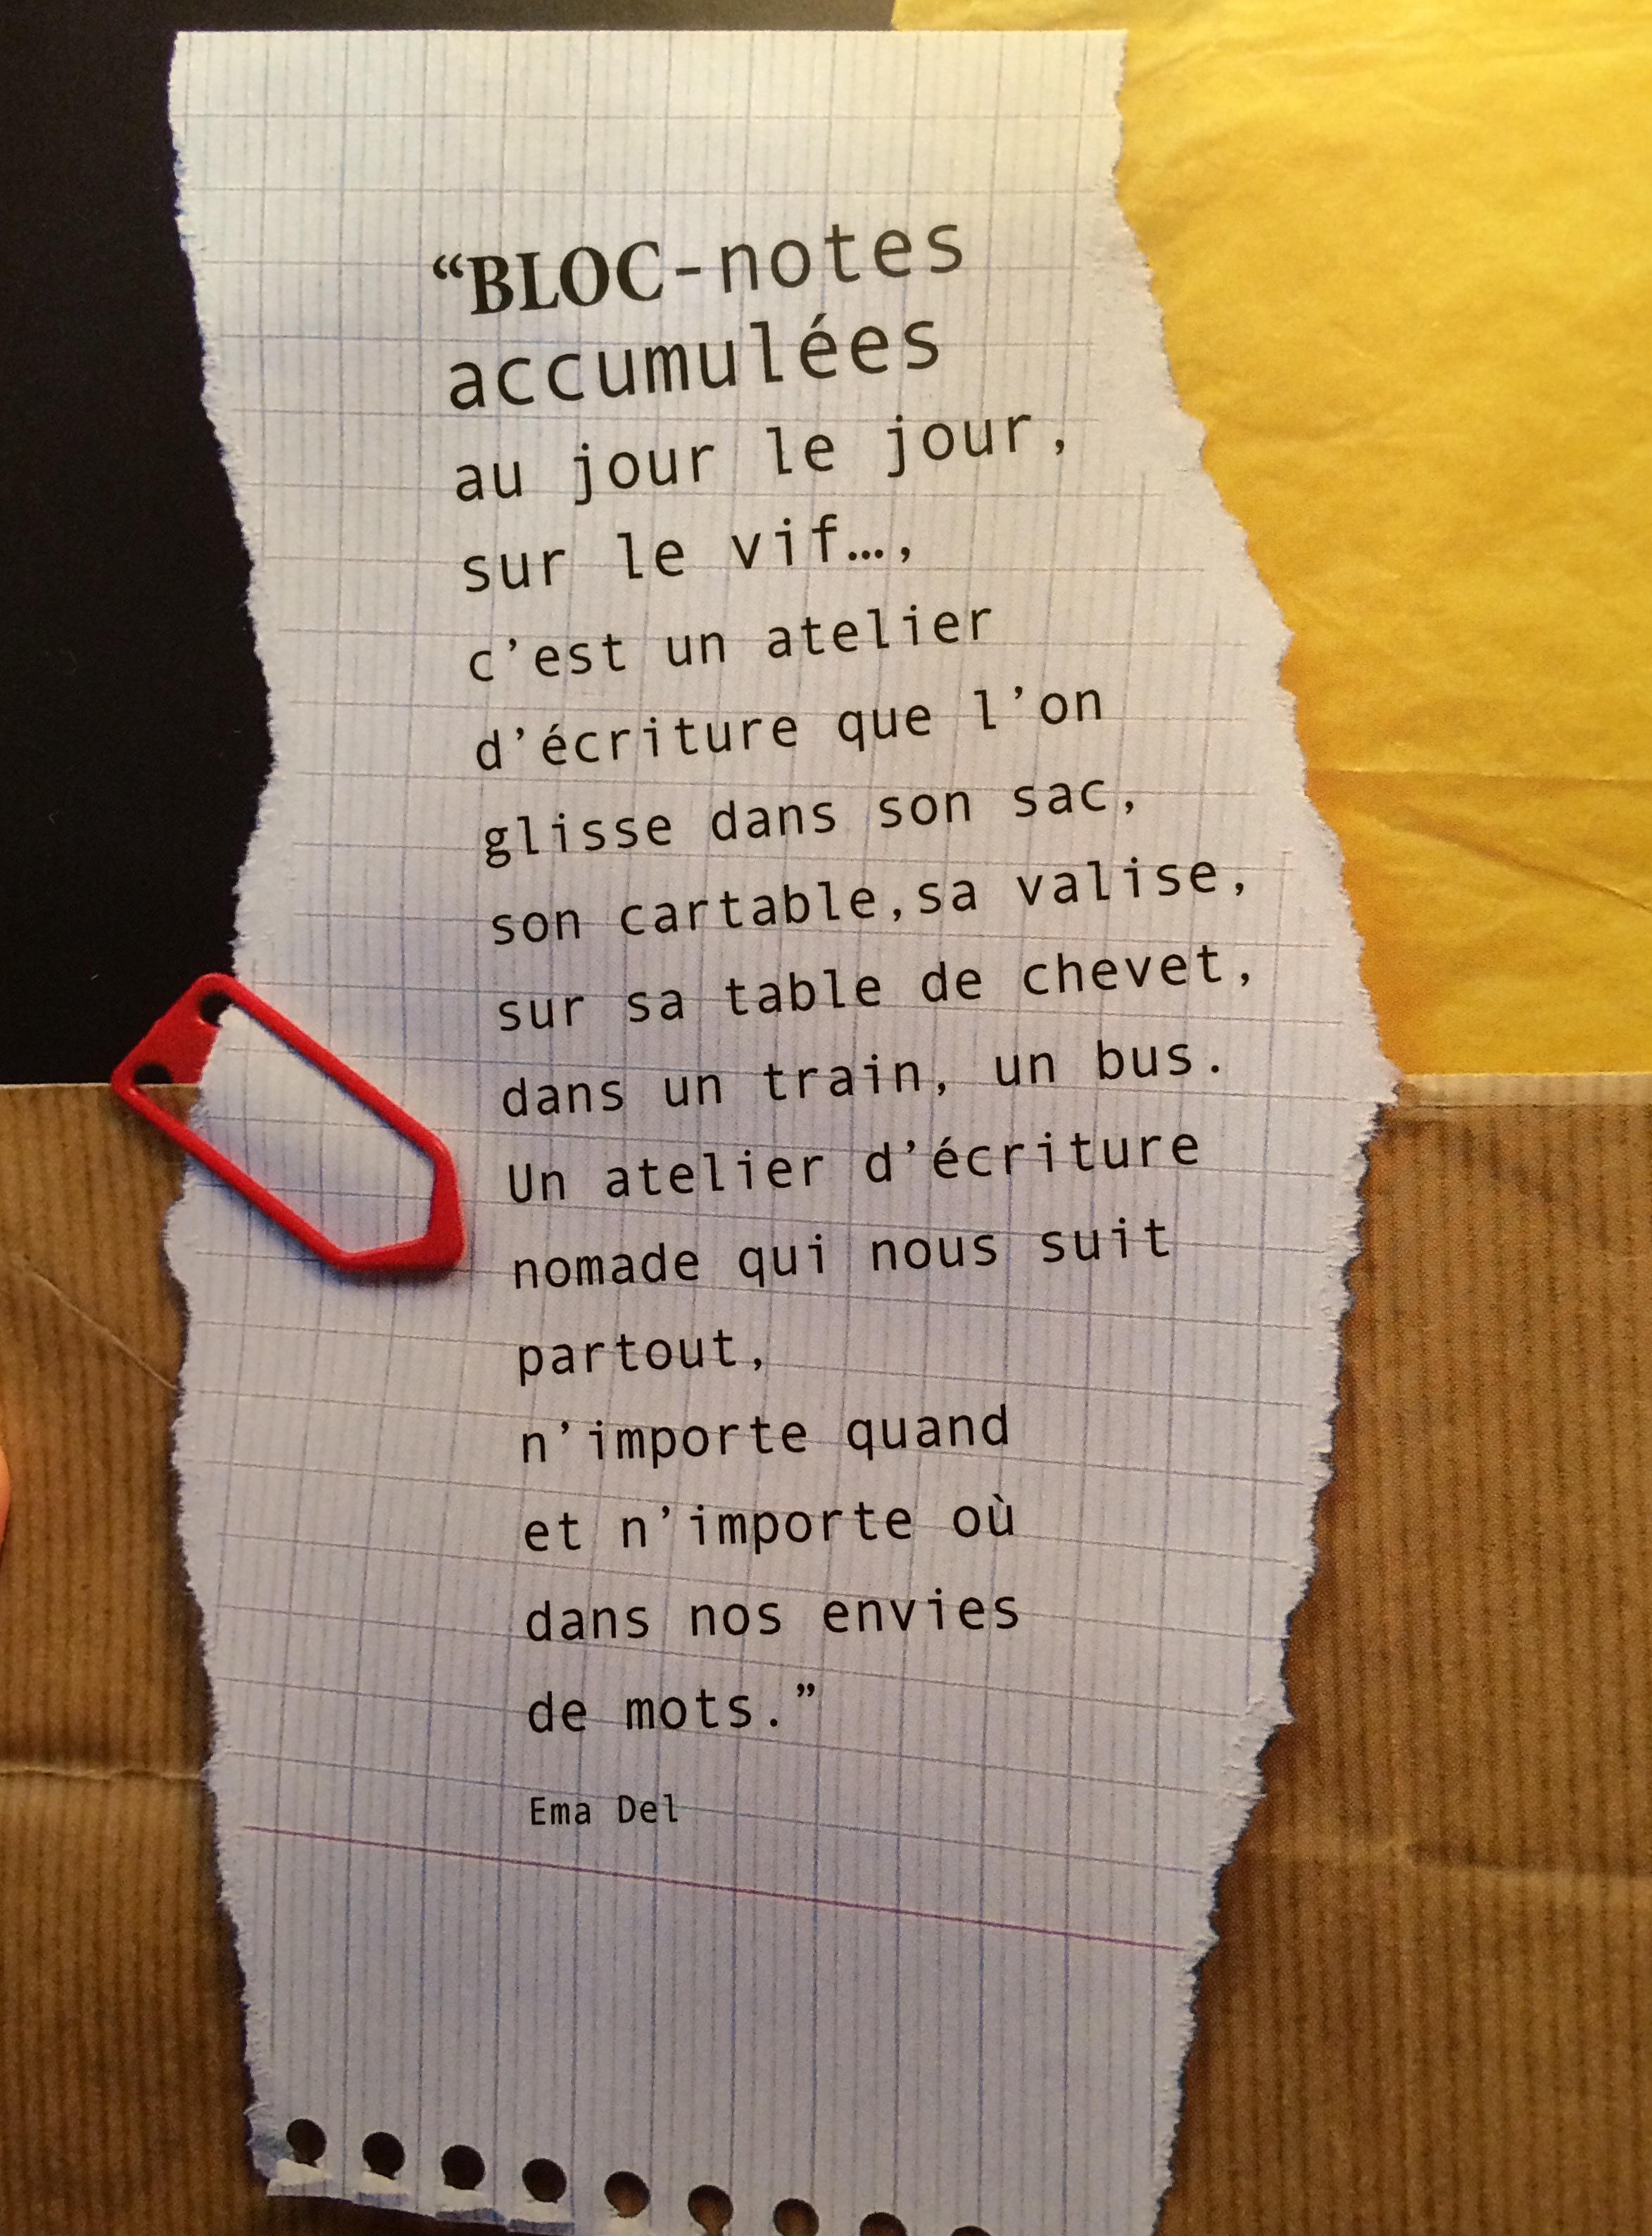 “BLOC-notes
accumulées
au jour le jour,
sur le vif…,
c’est un atelier
d’écriture que l’on
glisse dans son sac,
son cartable,sa valise,
sur sa table de chevet,
dans un train, un bus.
Un atelier d’écriture
nomade qui nous suit
partout,
n’importe quand
et n’importe où
dans nos envies
de mots.”
Ema Del